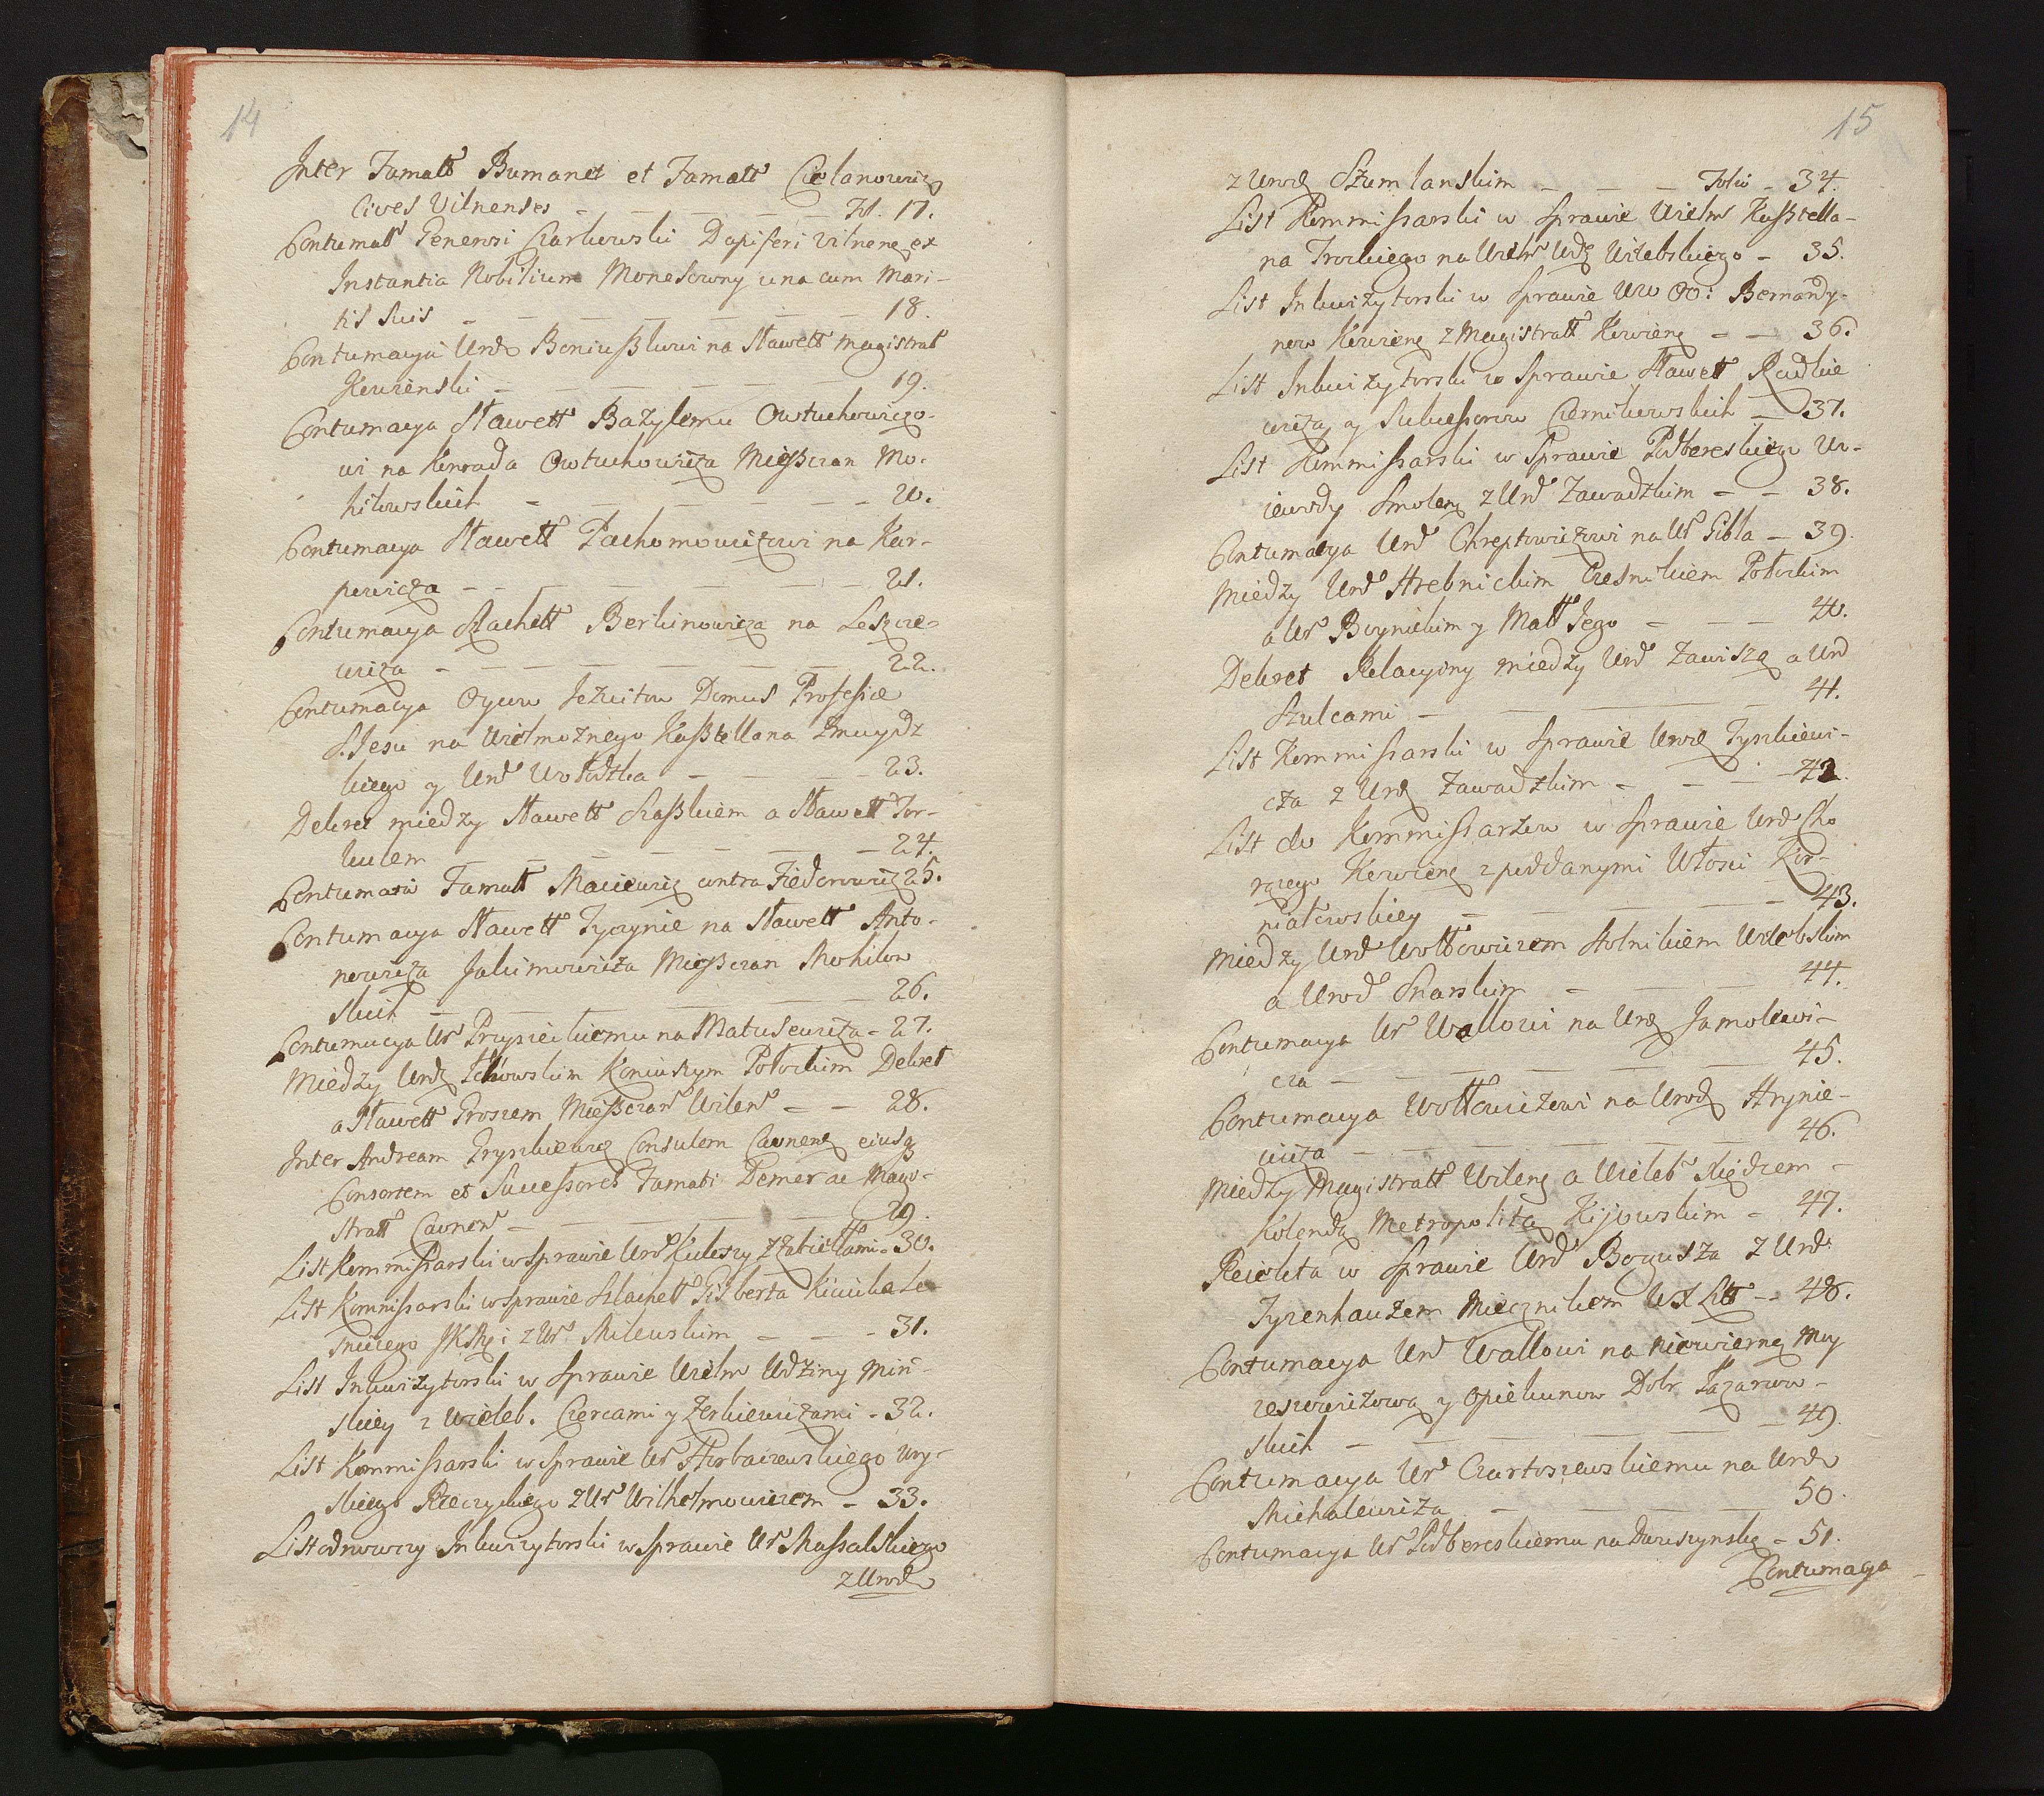 14
Inter Famatt Bumanet et Famatt Cielanowicz
Cives Vilnenses - - - - - - Fol. 17.
Contumatt Generosi Czarkowski Dapiferi Vilnenę ex
Instantia Nobilium Monesowny una cum Mari-
tis Suis - - - - - - 18.
Contumacya Urod Boniuszkowi na Sławett Magistrat
Kowienski - - - - - - 19.
Contumacya Sławett Bazylemu Owtuchowiczo-
wi na Konrada Owtuchowicza Mieszczan Mo-
hilowskich - - - - - - 20.
Contumacya Sławett Pachomowiczowi na Kar-
powicza - - - - - - 21.
Contumacya Szlachett Berkinowicza na Leszcze-
wicza - - - - - - 22.
Contumacya Oycow Jezuitow Domus Professae
S. Jesu na Wielmożnego Kasztellana Zmuydz
kiego y Urod Wołodzka - - - - 23.
Dekret miedzy Sławett Szaszkiem a Sławett Tor-
kulem - - - - - - 24.
Contumatio Famatt Maciewicz contra Fiedorowicz 25.
Contumacya Sławett Tyczynie na Sławett Anto-
nowicza Jakimowicza Mieszczan Mohilow
skich - - - - - - 26.
Contumacya Ur Przysieckiemu na Matusewicza - 27.
Miedzy Urodz Żukowskim Koniuszym Połockim Dekret
a Sławett Prosem Mieszczan Wilen - - 28.
Inter Andream Tryszkiewicz Consulem Caunenę eiusq
Consortem et Successores Famati Demer ac Magi-
stratt Caunen - - - - - - 29.
List Kommissarski w Sprawie Urod Kuleszy z Zabiełłami - 30.
List Kommissarski w Sprawie Szlachett Gilberta Kiciuka Le-
sniczego JKMci z Ur Milewskim - - - 31.
List Inkwizytorski w Sprawie Wielm Udziny Min-
skiey z Wieleb. Czercami y Zerkiewiczami - 32.
List Kommissarski w Sprawie Ur Horbaczewskiego Woy-
skiego Rzeczyckiego z Ur Wilhelmowiczem - 33.
List odnowczy Inkwizytorski w Sprawie Ur Massalskiego
z Urod
15
z Urodz Szumlanskim - - - Folio - 34.
List Kommissarski w Sprawie Wielm Kasztella-
na Trockiego na Wielm Wdę Witebskiego - 35.
List Inkwizytorski w Sprawie WW OO: Bernardy-
now Kowienę z Magistratt Kowienę - - 36.
List Inkwizytorski w Sprawie Sławett Rudkie
wicza y Sukcessorow Czernikowskich - 37.
List Kommissarski w Sprawie Podbereskiego Wo-
iewody Smolenę z Urod Zawadzkim - - 38.
Contumacya Urod Chreptowiczowi na Ur Gibla - 39.
Miedzy Urod Hrebnickim Czesnikiem Połockim
a Ur Boynickim y Matt Jego - - - 40.
Dekret Relacyiny miedzy Urod Zawiszą a Urod
Szulcami - - - - - 41.
List Kommissarski w Sprawie Urodz Tyszkiewi-
cza z Urodz Zawadzkim - - - 42.
List do Kommissarzow w Sprawie Urod Cho
rążego Kowienę z poddanymi Włosci Kor-
niałowskiey - - - - - 43.
Miedzy Urod Wołłowiczem Stolnikiem Witebskim
a Urod Snarskim - - - - 44.
Contumacya Ur Wallowi na Urodz Jamołkowi-
cza - - - - - - 45.
Contumacya Wołłowiczowi na Urodz Hrynie-
wicza - - - - - - 46.
Miedzy Magistratt Wilenę a Wieleb Xiędzem
Kolendą Metropolitą Kijowskim - 47.
Reiekta w Sprawie Urod Bogusza z Urod:
Tyzenhauzem Miecznikiem WXLitt - 48.
Contumacya Urod Wallowi na Niewierną Moy
zeszowiczową y Opiekunow Dobr Łazarow-
skich - - - - - - 49.
Contumacya Ur Czartoszewskiemu na Urod
Michalewicza - - - - 50.
Contumacya Ur Podbereskiemu na Dwuszynskę - 51.
Contumacya